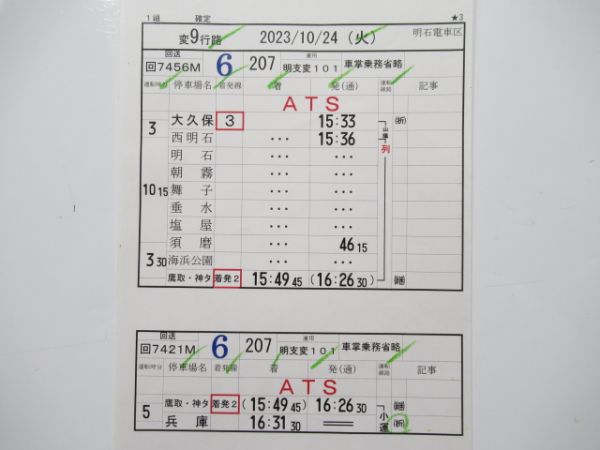 1組 確定 ★3
変9行路 2023/10/24 (火) 明石電車区
回送 運用
回7456M 6 207 明支変101 車掌乗務省略
運転時分 停車場名 着発線 着 発(通) 運転線路 記事
ATS
大久保 3 15:33
3
西明石 ... 15:36
列
明石 ... ...
朝霧 ... ...
10 15 舞子 ... ...
垂水 ... ...
塩屋 ... ...
須磨 ... 46 15
3 30 海浜公園 ... ...
鷹取・神タ 着発2 15:49 45 (16:26 30)
回送 運用
回7421M 6 207 明支変101 車掌乗務省略
運転時分 停車場名 着発線 着 発(通) 運転線路 記事
ATS
鷹取・神タ 着発2 (15:49 45) 16:26 30
5 小運
兵庫 16:31 30 ==